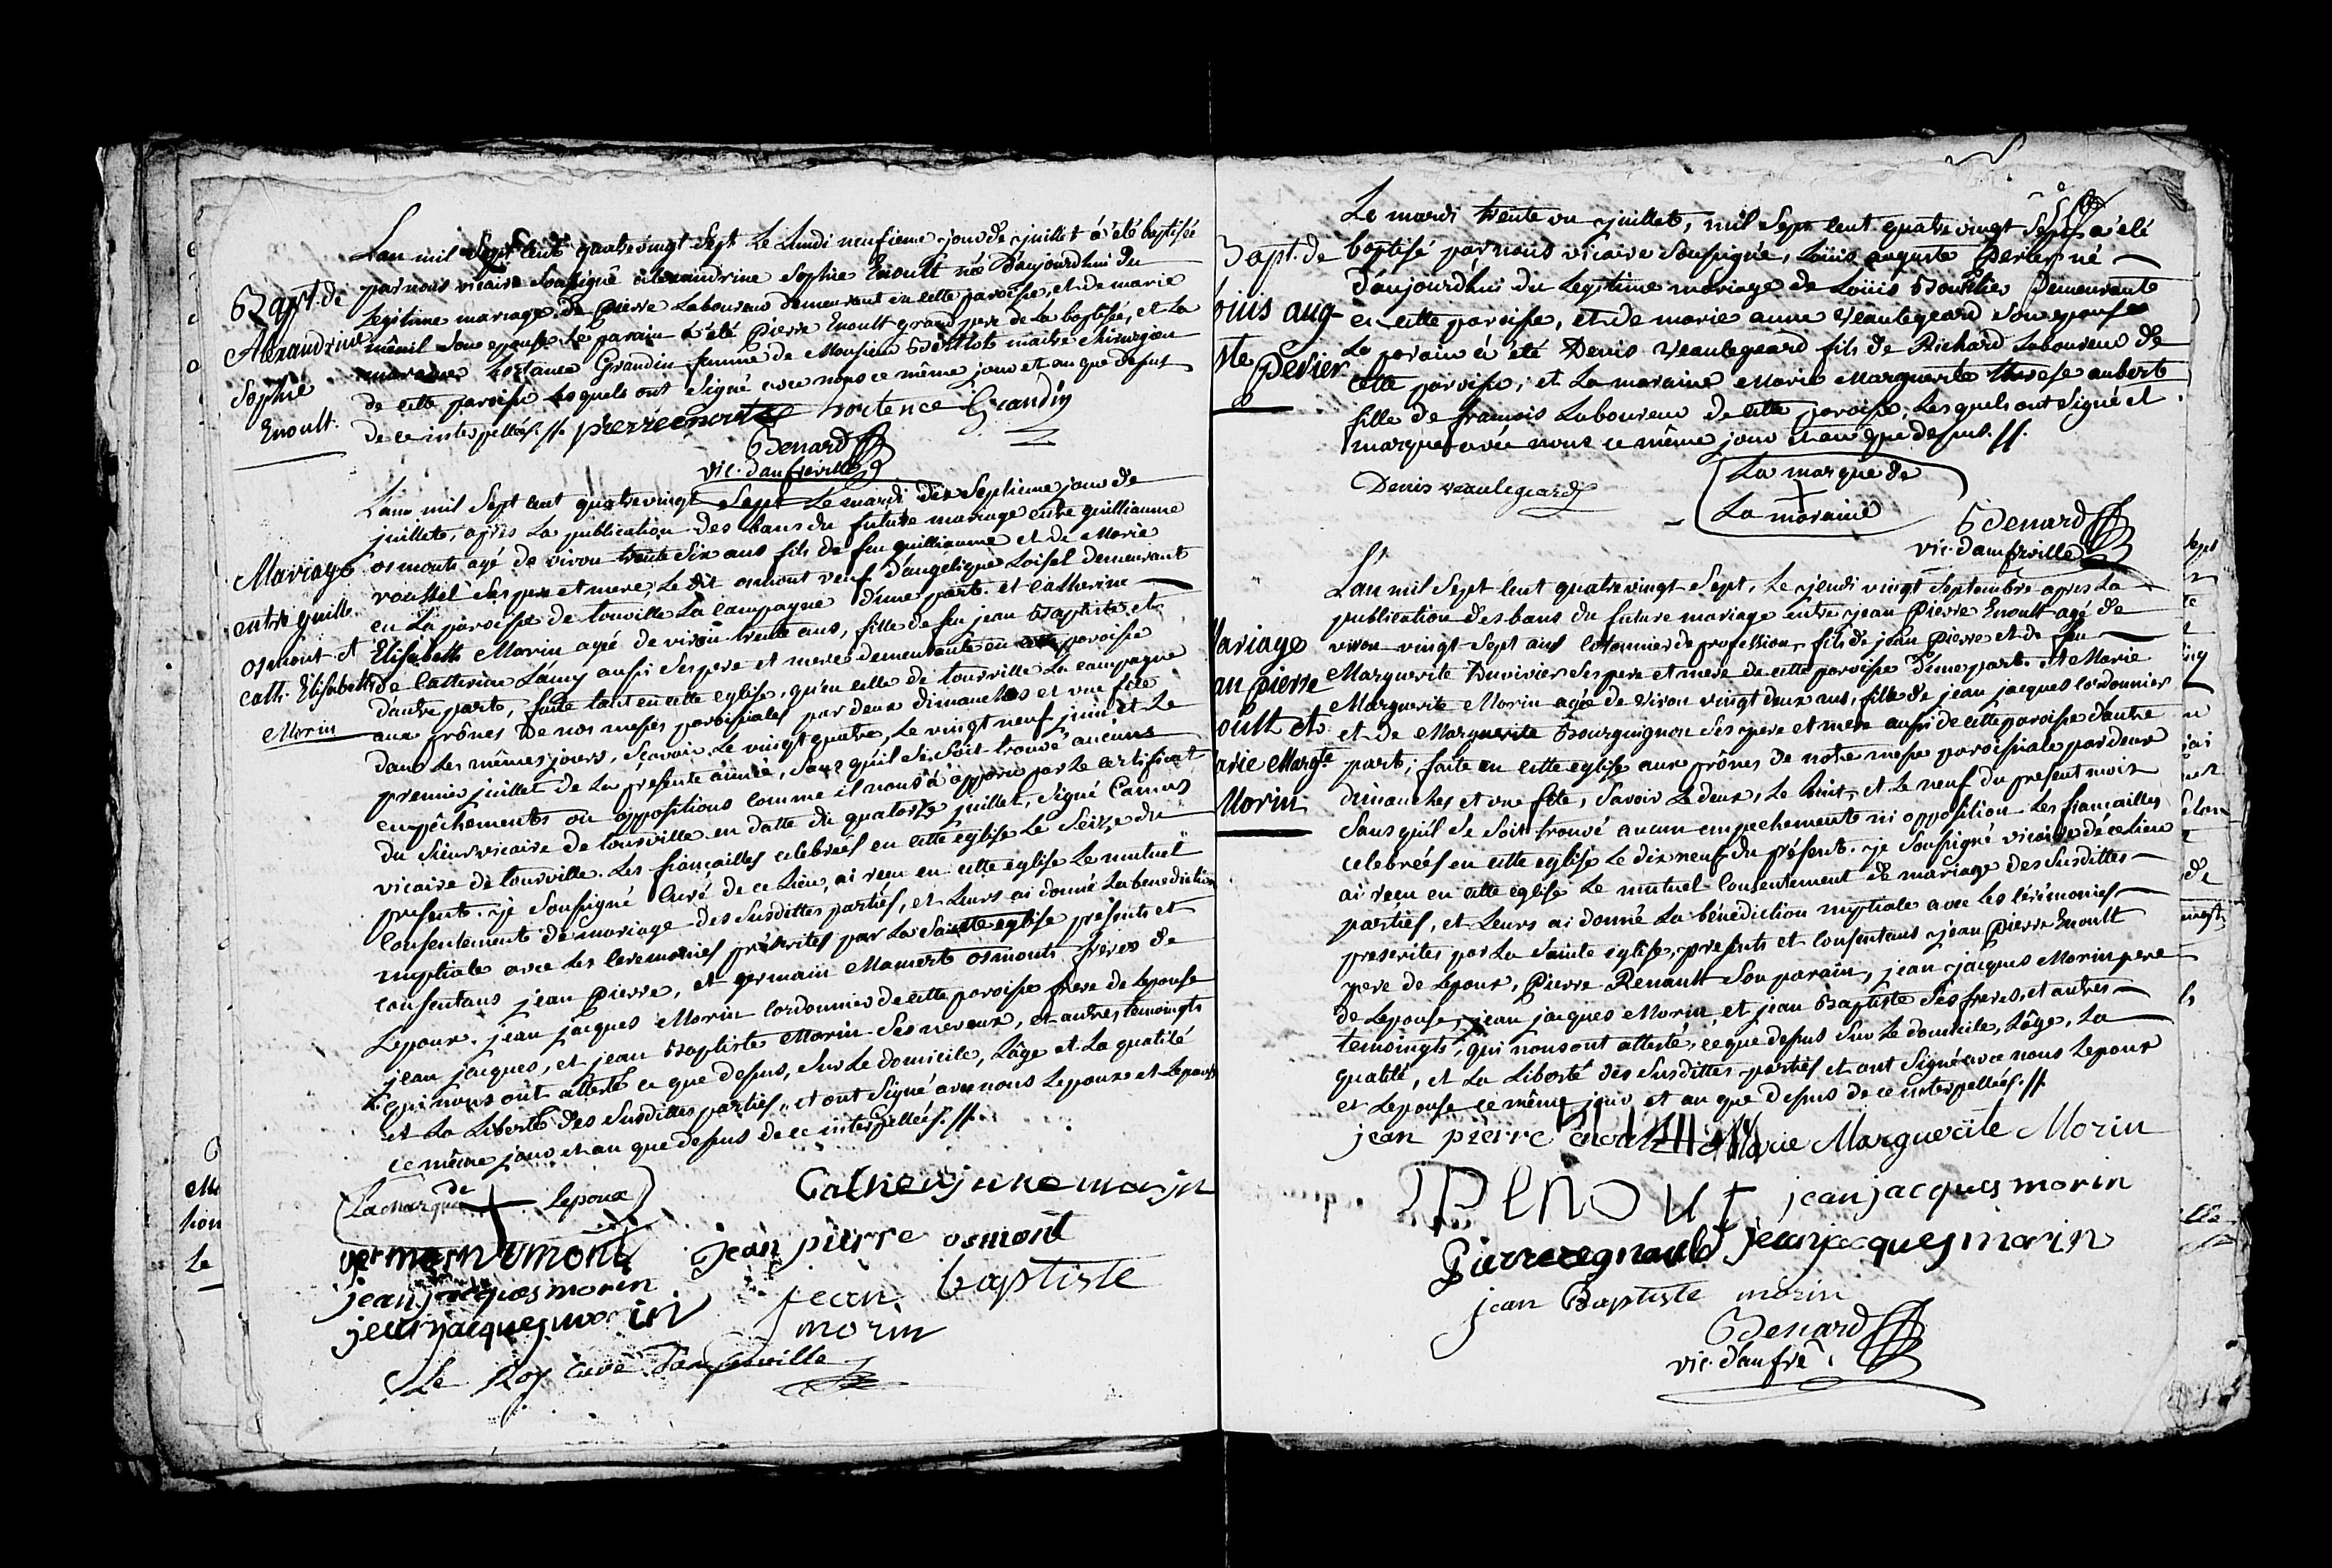 Bapt. de
Alexandrine
Sophie
Enoult.
Lan mil Sept Cent quatrevingt Sept Le Lundi neufieme jour de juillet à été baptisée
par nous vicaire Soussigné alexandrine Sophie Enoult née d'aujourdhui du
Legitime mariage de Pierre Laboureur demeurant en cette paroisse, et de marie
ménil Son epouse. Le parain à été Pierre Enoult grand pere de la baptisée, et La
maraine hortance Grandin femme de Monsieur maitre chirurgien
de cette paroisse Lesquels ont Signé avec nous ce même jour et an que dessus
de ce interpellés.//. pierre enoult hortence Grandin
Benard
vic. d'amfreville
Mariage
entre guille.
osmont et
cath. Elisabeth
Morin
L'an mil Sept cent quatrevingt Sept Le mardi dix Septieme jour de
juillet, après La publication des bans du future mariage entre guilliaume
osmont agé de viron trente Six ans fils de feu guilliaume et de Marie
roussel Ses pere et mere, Le dit osmont veuf d'angelique Loisel demeurant
en La paroisse de tourville La campagne d'une part. et Catherine
Elisabeth Morin agée de viron trente ans, fille de feu jean Baptiste et
de Catherine Lamy aussi Ses pere et mere demeurante en cette paroisse
d'autre part, faite tant en cette eglise, qu'en celle de tourville La campagne
aux prônes de nos messes paroissiales par deux dimanches et une fête
dans Les mêmes jours, Sçavoir Le vingt quatre, Le vingt neuf juin et Le
premier juillet de La presente année, Sans qu'il Se Soit trouvé aucuns
empêchements ou oppositions comme il nous à apparu par Le certificat
du Sieur vicaire de tourville en datte du quatorze juillet, Signé Camus
vicaire de tourville. Les fiançailles celebreés en cette eglise Le Seize du
present. je Soussigné Curé de ce Lieu, ai recu en cette eglise Le mutuel
Consentement de mariage des Susdittes parties, et Leurs ai donné La benediction
nuptiale avec Les Ceremonies préscrites par La Sainte eglise presents et
consentans jean Pierre, et germain Mamert osmont freres de
Lepoux. jean jacques Morin Cordonnier de cette paroisse frere de Lepouse
jean jacques, et jean Baptiste Morin Ses neveux, et autres temoingts
qui nous ont attesté ce que dessus, Sur Le domicile, L'âge et La qualité
et La Liberté des Susdittes parties, et ont Signé avec nous Lepoux et Lepouse
ce même jour et an que dessus de ce interpellés.//.
La marque de Lepoux
germain osmont jean pierre osmont
jean jacques morin jean baptiste
jean jacques morin morin
Le Roy curé d'amfreville
Bapt. de
ouis aug-
ste Perier
Le mardi trente un juillet, mil Sept Cent quatre vingt Sept à été
baptisé par nous vicaire Soussigné, Loüis auguste Perier né
d'aujourdhui du Legitime mariage de Loüis demeurant
en cette paroisse, et de marie anne veaulegeard Son epouse
Le parain à été Denis veaulegeard fils de Richard Laboureur de
cette paroisse, et La maraine Marie Marguerite therese aubert
fille de françois Laboureur de cette paroisse, Lesquels ont Signé et
marqué avec nous ce même jour et an que dessus.//.
Denis veaulegeard
La marque de
La maraine
Benard
vic. d'amfreville
ariage
an pierre
oult et
arie Margte
Morin
L'an mil Sept Cent quatre vingt Sept, Le jeudi vingt Septembre apres La
publication des bans du future mariage entre jean Pierre Enoult agé de
viron vingt Sept ans de profession, fils de jean Pierre et de feu
Marguerite Duvivier Ses pere et mere de cette paroisse d'une part. et Marie
Marguerite Morin agée de viron vingt deux ans, fille de jean jacques Cordonnier
et de Marguerite Bourguignon Ses pere et mere aussi de cette paroisse d'autre
part, faite en cette eglise aux prônes de notre messe paroissiale par deux
dimanches et une fête, Savoir Le deux, Le huit, et Le neuf du present mois
Sans qu'il Se Soit trouvé aucun empechement ni opposition Les fiançailles
celebreés en cette eglise Le dix neuf du présent. je Soussigné vicaire de ce Lieu
ai reçu en cette eglise Le mutuel Consentement de mariage des Susdittes
parties, et Leurs ai donné La bénédiction nuptiale avec Les Cérémonies
prescrites par La Sainte eglise, presents et consentans jean Pierre Enoult
pere de Lepoux, Pierre Renault Son parain, jean jacques Morin pere
de Lepouse, jean jacques Morin, et jean Baptiste Ses freres, et autres
temoingts, qui nous ont attesté, ce que dessus Sur Le domicile, L'âge, La
qualité, et La Liberté des Susdittes parties et ont Signé avec nous Lepoux
et Lepouse ce même jour et an que dessus de ce interpellés.//.
jean pierre enoult Marie Marguerite Morin
jean jacques morin
Pierre regnauld jean jacques morin
jean Baptiste morin
Benard
vic. d'amfre